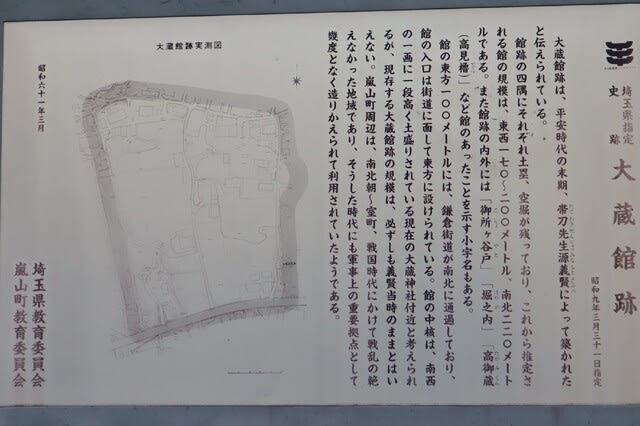 埼玉県指定
史跡
大蔵館跡
昭和九年三月三十一日指定
大蔵館跡は、平安時代の末期、帯刀先生源義賢によって築かれた
と伝えられている。
館跡の四隅にそれぞれ土塁、空堀が残っており、これから推定さ
れる館の規模は、東西一七〇～二〇〇メートル、南北二二〇メート
ルである。また館跡の内外には「御所ヶ谷戸」「堀之内」「高御蔵
（高見櫓）」など館のあったことを示す小字名もある。
館の東方一〇〇メートルには、鎌倉街道が南北に通過しており、
館の入口は街道に面して東方に設けられている。館の中核は、南西
の一画に一段高く土盛りされている現在の大蔵神社付近と考えられ
るが、現存する大蔵館跡の規模は、必ずしも義賢当時のままとはい
えない。嵐山町周辺は、南北朝～室町、戦国時代にかけて戦乱の絶
えなかった地域であり、そうした時代にも軍事上の重要拠点として
幾度となく造りかえられて利用されていたようである。
大蔵館跡実測図
昭和六十一年三月
埼玉県教育委員会
嵐山町教育委員会